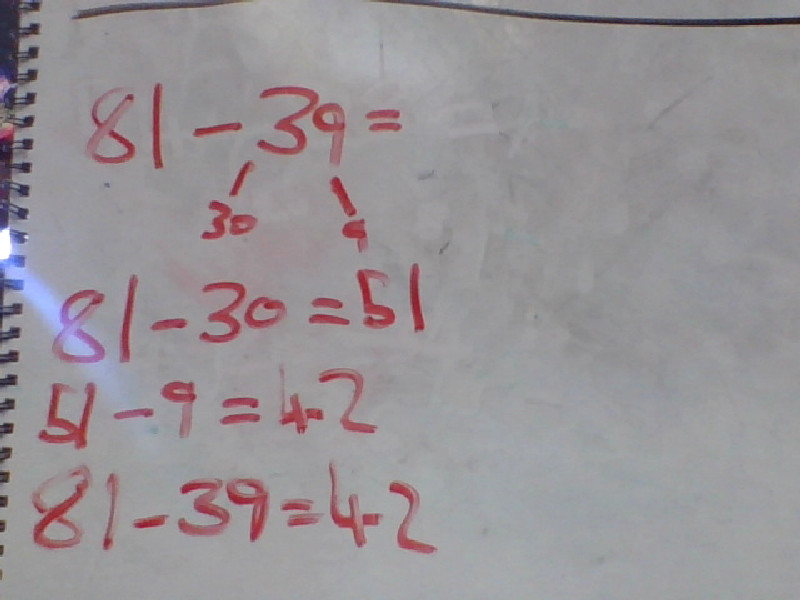 81 - 39 =
30 9
81 - 30 = 51
51 - 9 = 42
81 - 39 = 42